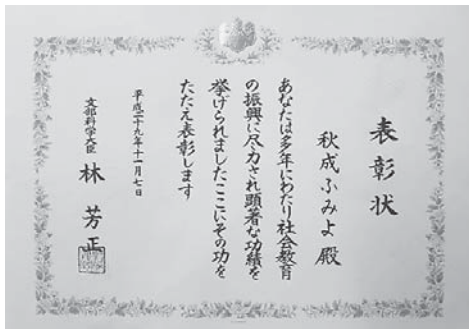 表彰状
秋成ふみよ殿
あなたは多年にわたり社会教育
の振興に尽力され顕著な功績を
挙げられましたここにその功を
たたえ表彰します
平成二十九年十一月七日
文部科学大臣 林 芳正